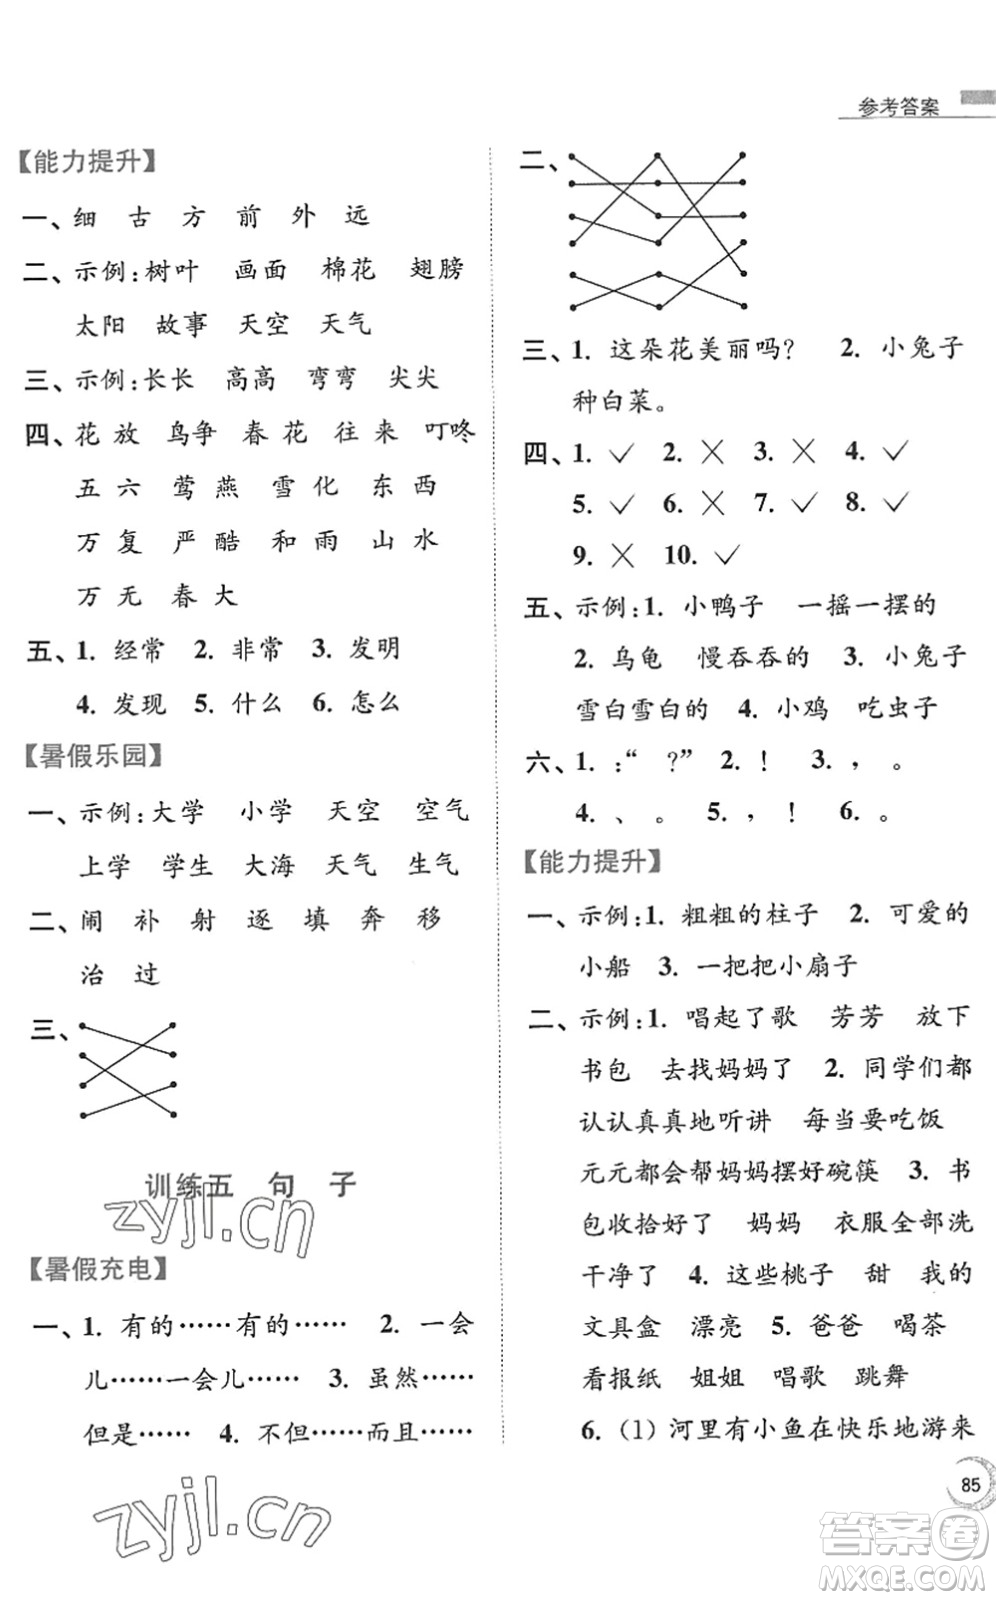 参考答案
【能力提升】
一、细 古 方 前 外 远
二、示例:树叶 画面 棉花 翅膀
太阳 故事 天空 天气
三、示例:长长 高高 弯弯 尖尖
四、花 放 鸟争 春 花 往 来 叮咚
五 六 莺 燕 雪 化 东 西
万 复 严 酷 和 雨 山 水
万 无 春 大
五、1. 经常 2. 非常 3. 发明
4. 发现 5. 什么 6. 怎么
【暑假乐园】
一、示例:大学 小学 天空 空气
上学 学生 大海 天气 生气
二、闹 补 射 逐 填 奔 移
治 过
三、
训练五 句 子
【暑假充电】
一、1. 有的……有的…… 2. 一会
儿……一会儿…… 3. 虽然……
但是…… 4. 不但……而且……
zyjl.cn
zyjl.cn
二、
三、1. 这朵花美丽吗? 2. 小兔子
种白菜。
四、1. ✓ 2. ╳ 3. ╳ 4. ✓
5. ✓ 6. ╳ 7. ✓ 8. ✓
9. ╳ 10. ✓
五、示例:1. 小鸭子 一摇一摆的
2. 乌龟 慢吞吞的 3. 小兔子
雪白雪白的 4. 小鸡 吃虫子
六、1. :“ ?” 2. ! 3. , 。
4. 、 。 5. , ! 6. 。
【能力提升】
一、示例:1. 粗粗的柱子 2. 可爱的
小船 3. 一把把小扇子
二、示例:1. 唱起了歌 芳芳 放下
书包 去找妈妈了 2. 同学们都
认认真真地听讲 每当要吃饭
元元都会帮妈妈摆好碗筷 3. 书
包收拾好了 妈妈 衣服全部洗
干净了 4. 这些桃子 甜 我的
文具盒 漂亮 5. 爸爸 喝茶
看报纸 姐姐 唱歌 跳舞
6. (1) 河里有小鱼在快乐地游来
85
答案卷
MXQE.COM